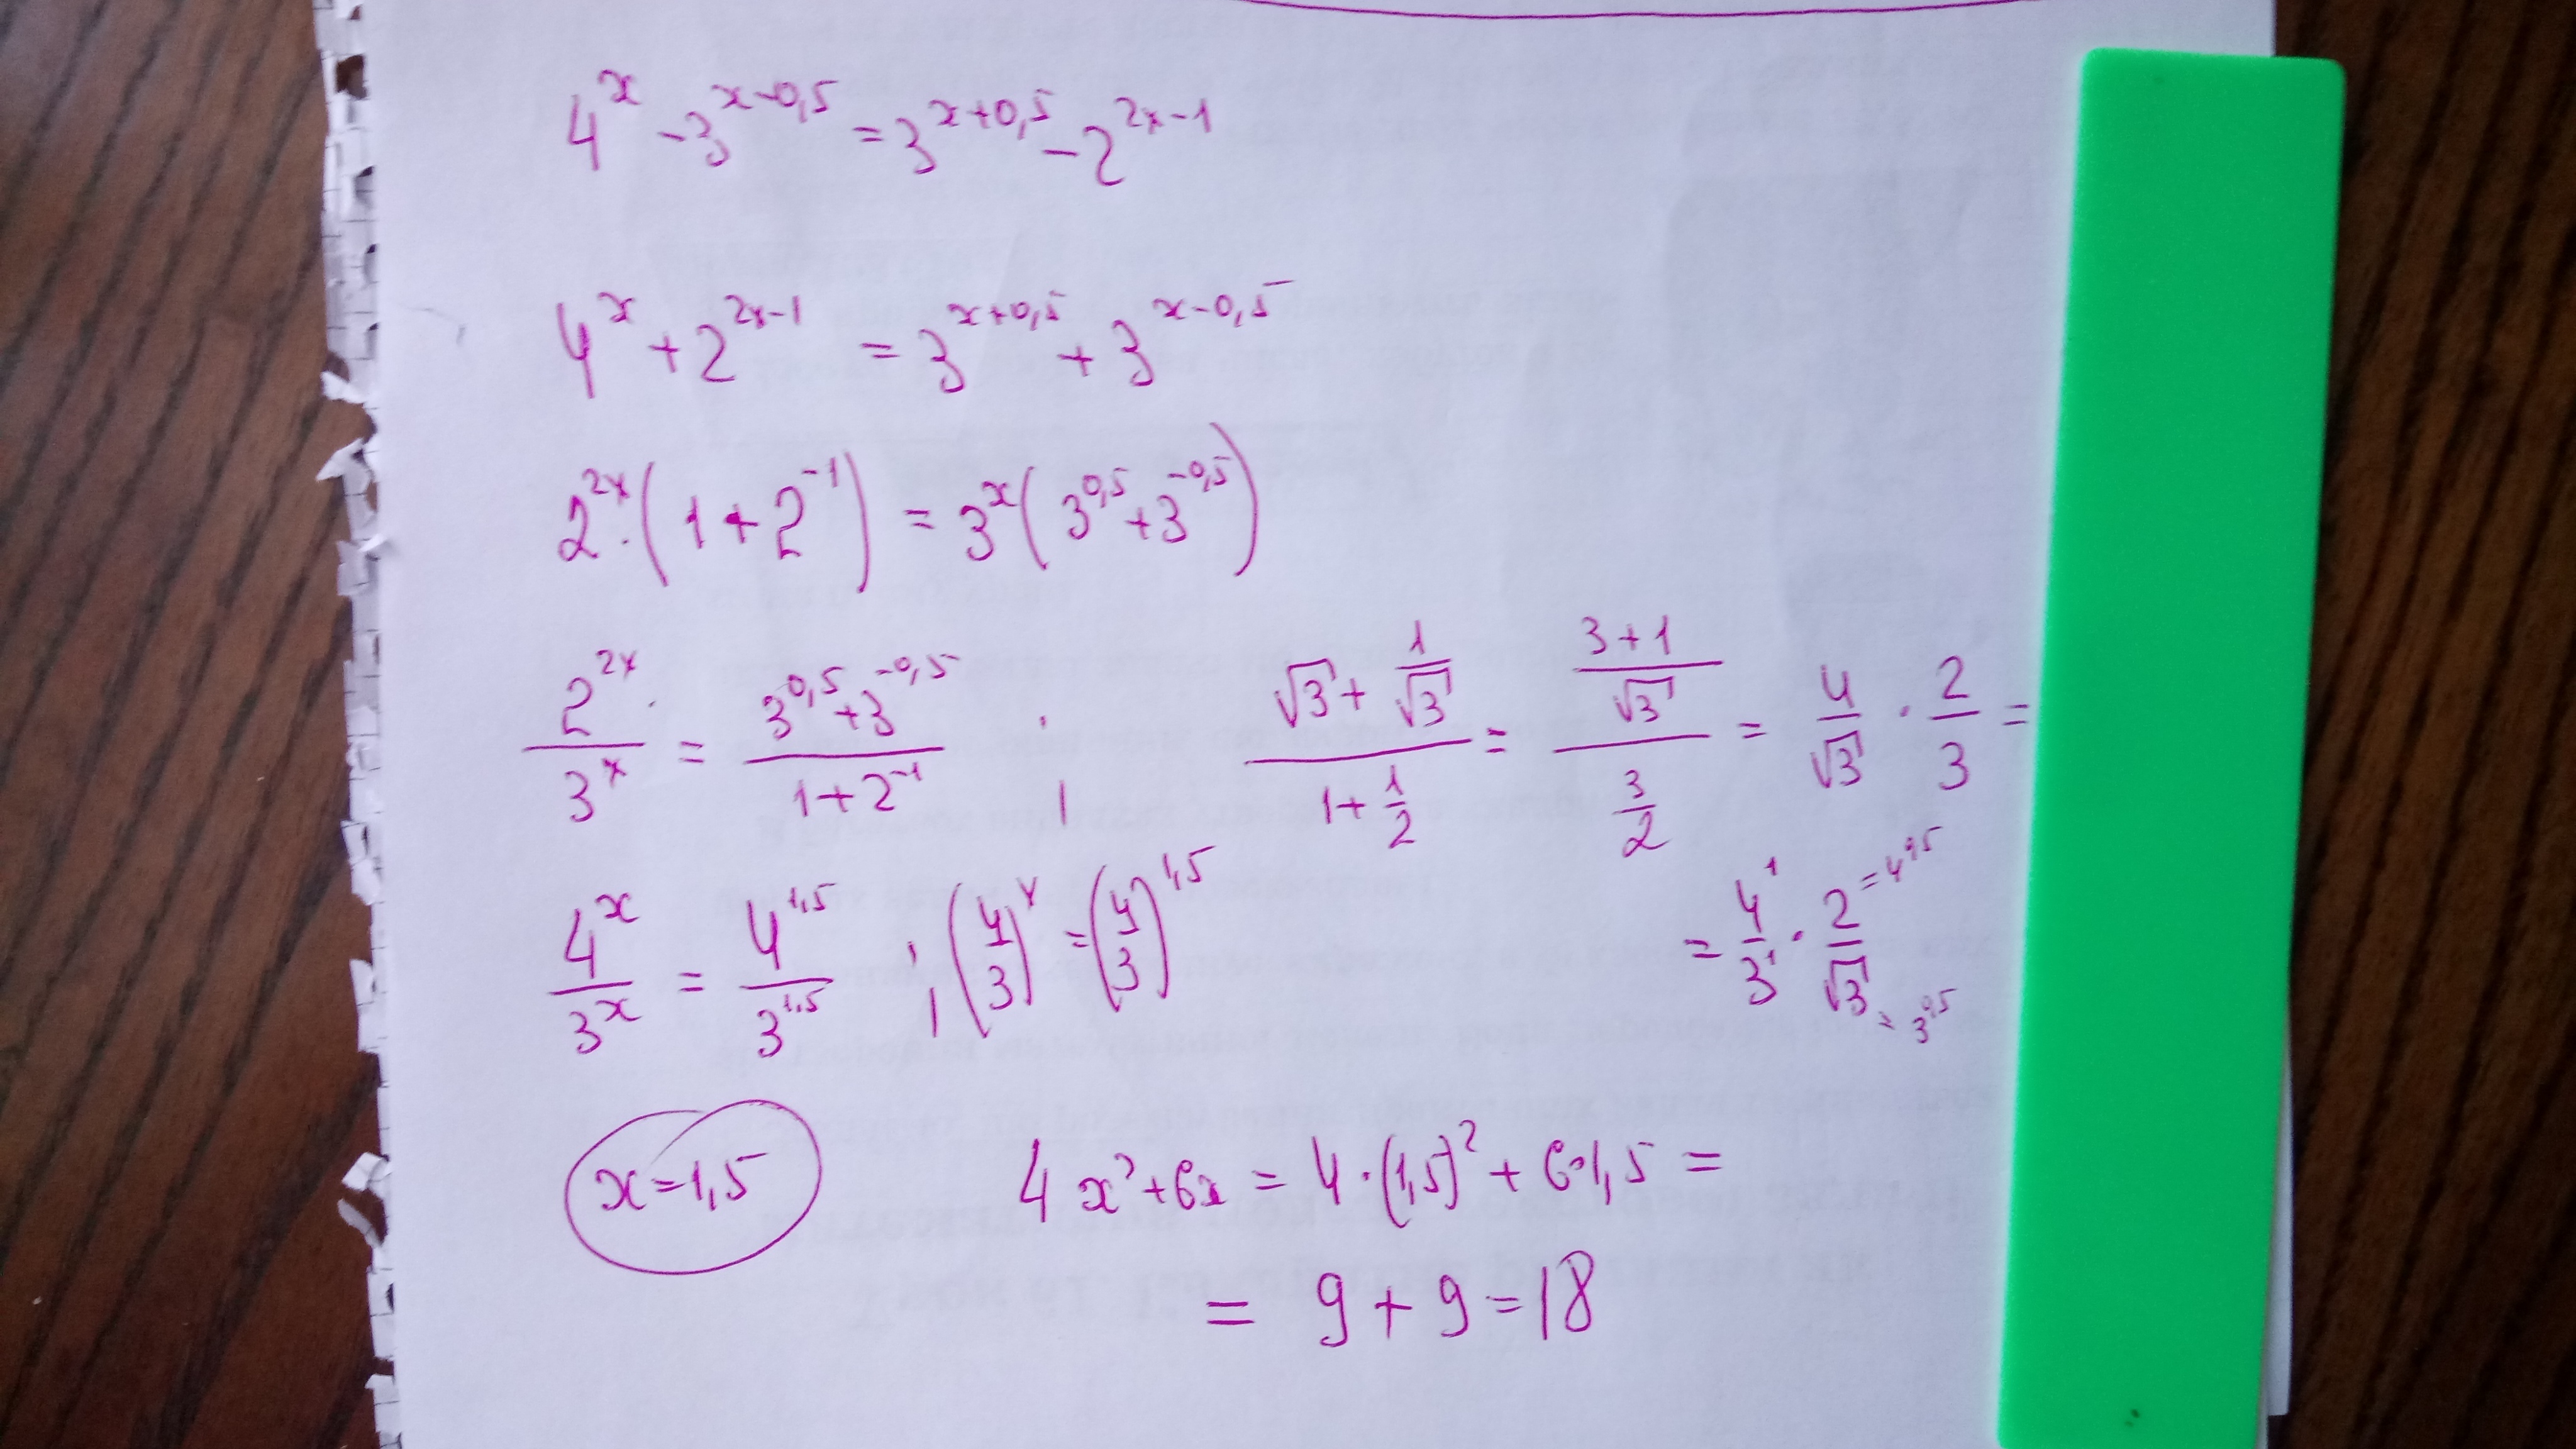 4^x - 3^(x-0,5) = 3^(x+0,5) - 2^(2x-1)
4^x + 2^(2x-1) = 3^(x+0,5) + 3^(x-0,5)
2^(2x) · (1 + 2^(-1)) = 3^x (3^(0,5) + 3^(-0,5))
2^(2x) / 3^x = (3^(0,5) + 3^(-0,5)) / (1 + 2^(-1)) ; (√3 + 1/√3) / (1 + 1/2) = ((3+1)/√3) / (3/2) = 4/√3 · 2/3 =
4^x / 3^x = 4^(1,5) / 3^(1,5) ; (4/3)^x = (4/3)^(1,5)
= 4^1/3^1 · 2/√3 = 4^(0,5) = 3^(0,5)
x = 1,5
4x² + 6x = 4 · (1,5)² + 6·1,5 =
= 9 + 9 = 18